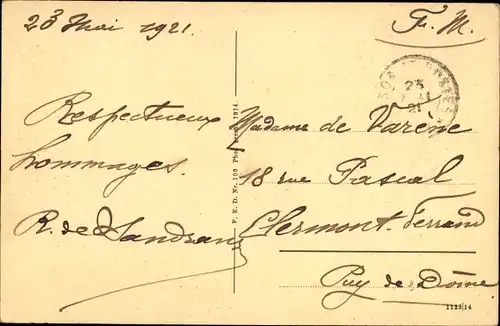 23 Mai 1921.
Respectueux
hommages.
R. de
F. M.
23
21
Madame de Varène
18 rue Pascal
Clermont-Ferrand
Puy de Dôme
1914
F. E. D. Nr. 109
1123/14